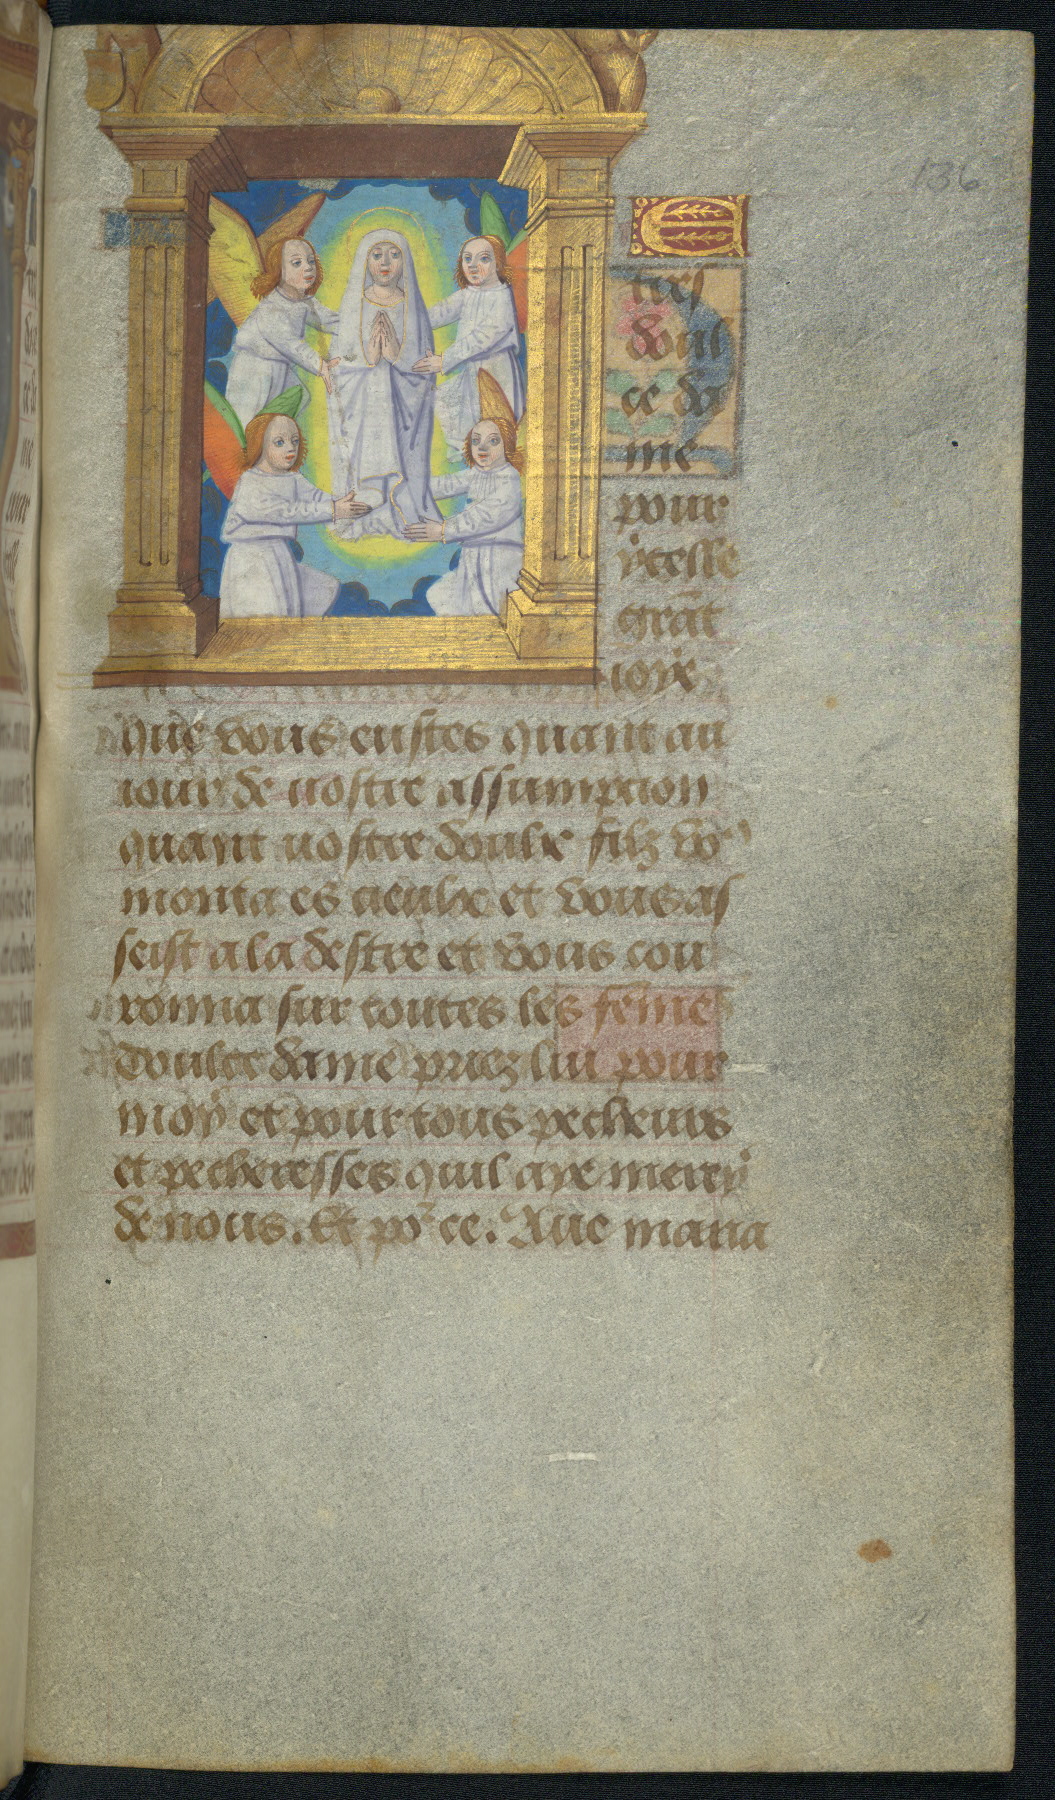 136
E
tres
doul
ce da
me
pour
ycelle
grāt
ioye
Que vous eustes quant au
iour de uostre assumpcion
quant uostre doulx filz vo⁹
monta es cieulx et vous as
seist a la destre et vous cou
ronna sur toutes les fēmes
Doulce dame priez lui pour
moy et pour tous pecheurs
et pecheresses quil aye mercy
de nous. Et po᷑ ce. Aue maria